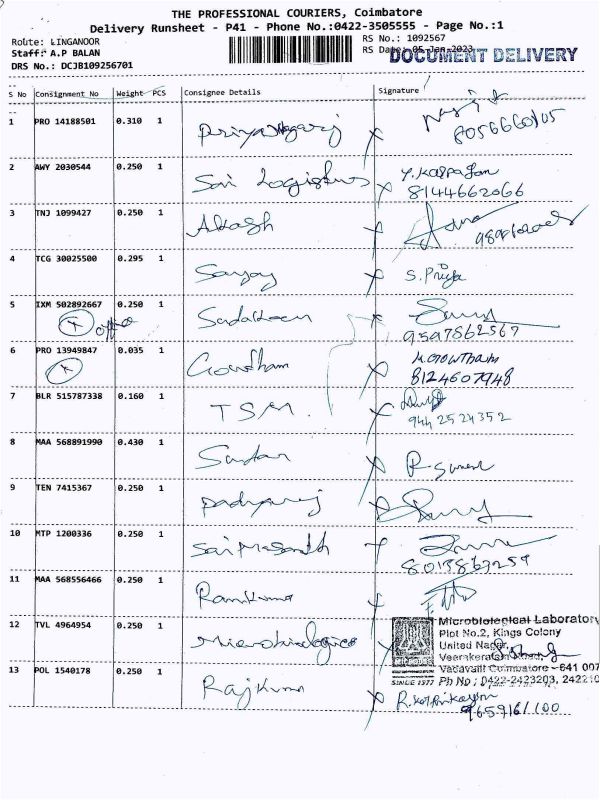 THE PROFESSIONAL COURIERS, Coimbatore
Delivery Runsheet - P41 - Phone No.:0422-3505555 - Page No.:1
Route: LINGANOOR
RS No.: 1092567
Staff: A.P BALAN
RS Date: 05-Jan-2023
DOCUMENT DELIVERY
DRS No.: DCJB109256701
S No Consignment No Weight PCS Consignee Details Signature
1 PRO 14188501 0.310 1
2 AWY 2030544 0.250 1 Sai Logistics
8144662066
3 TNJ 1099427 0.250 1 Akash
4 TCG 30025500 0.295 1 Sanjay S. Priya
5 IXM 502892667 0.250 1
office
9597862567
6 PRO 13949847 0.035 1 Goudham M.Gowtham
8124607948
7 BLR 515787338 0.160 1 TSM.
9442524352
8 MAA 568891990 0.430 1 R. Suresh
9 TEN 7415367 0.250 1
10 MTP 1200336 0.250 1 Sai Prasandh
8013863259
11 MAA 568556466 0.250 1 Ramkumar
12 TVL 4964954 0.250 1
Microbiological Laboratory
Plot No.2, Kings Colony
United Nagar,
Vadavalli Coimbatore - 641 007
SINCE 1977 Ph No : 0422-2423203, 242210
13 POL 1540178 0.250 1 Rajkumar